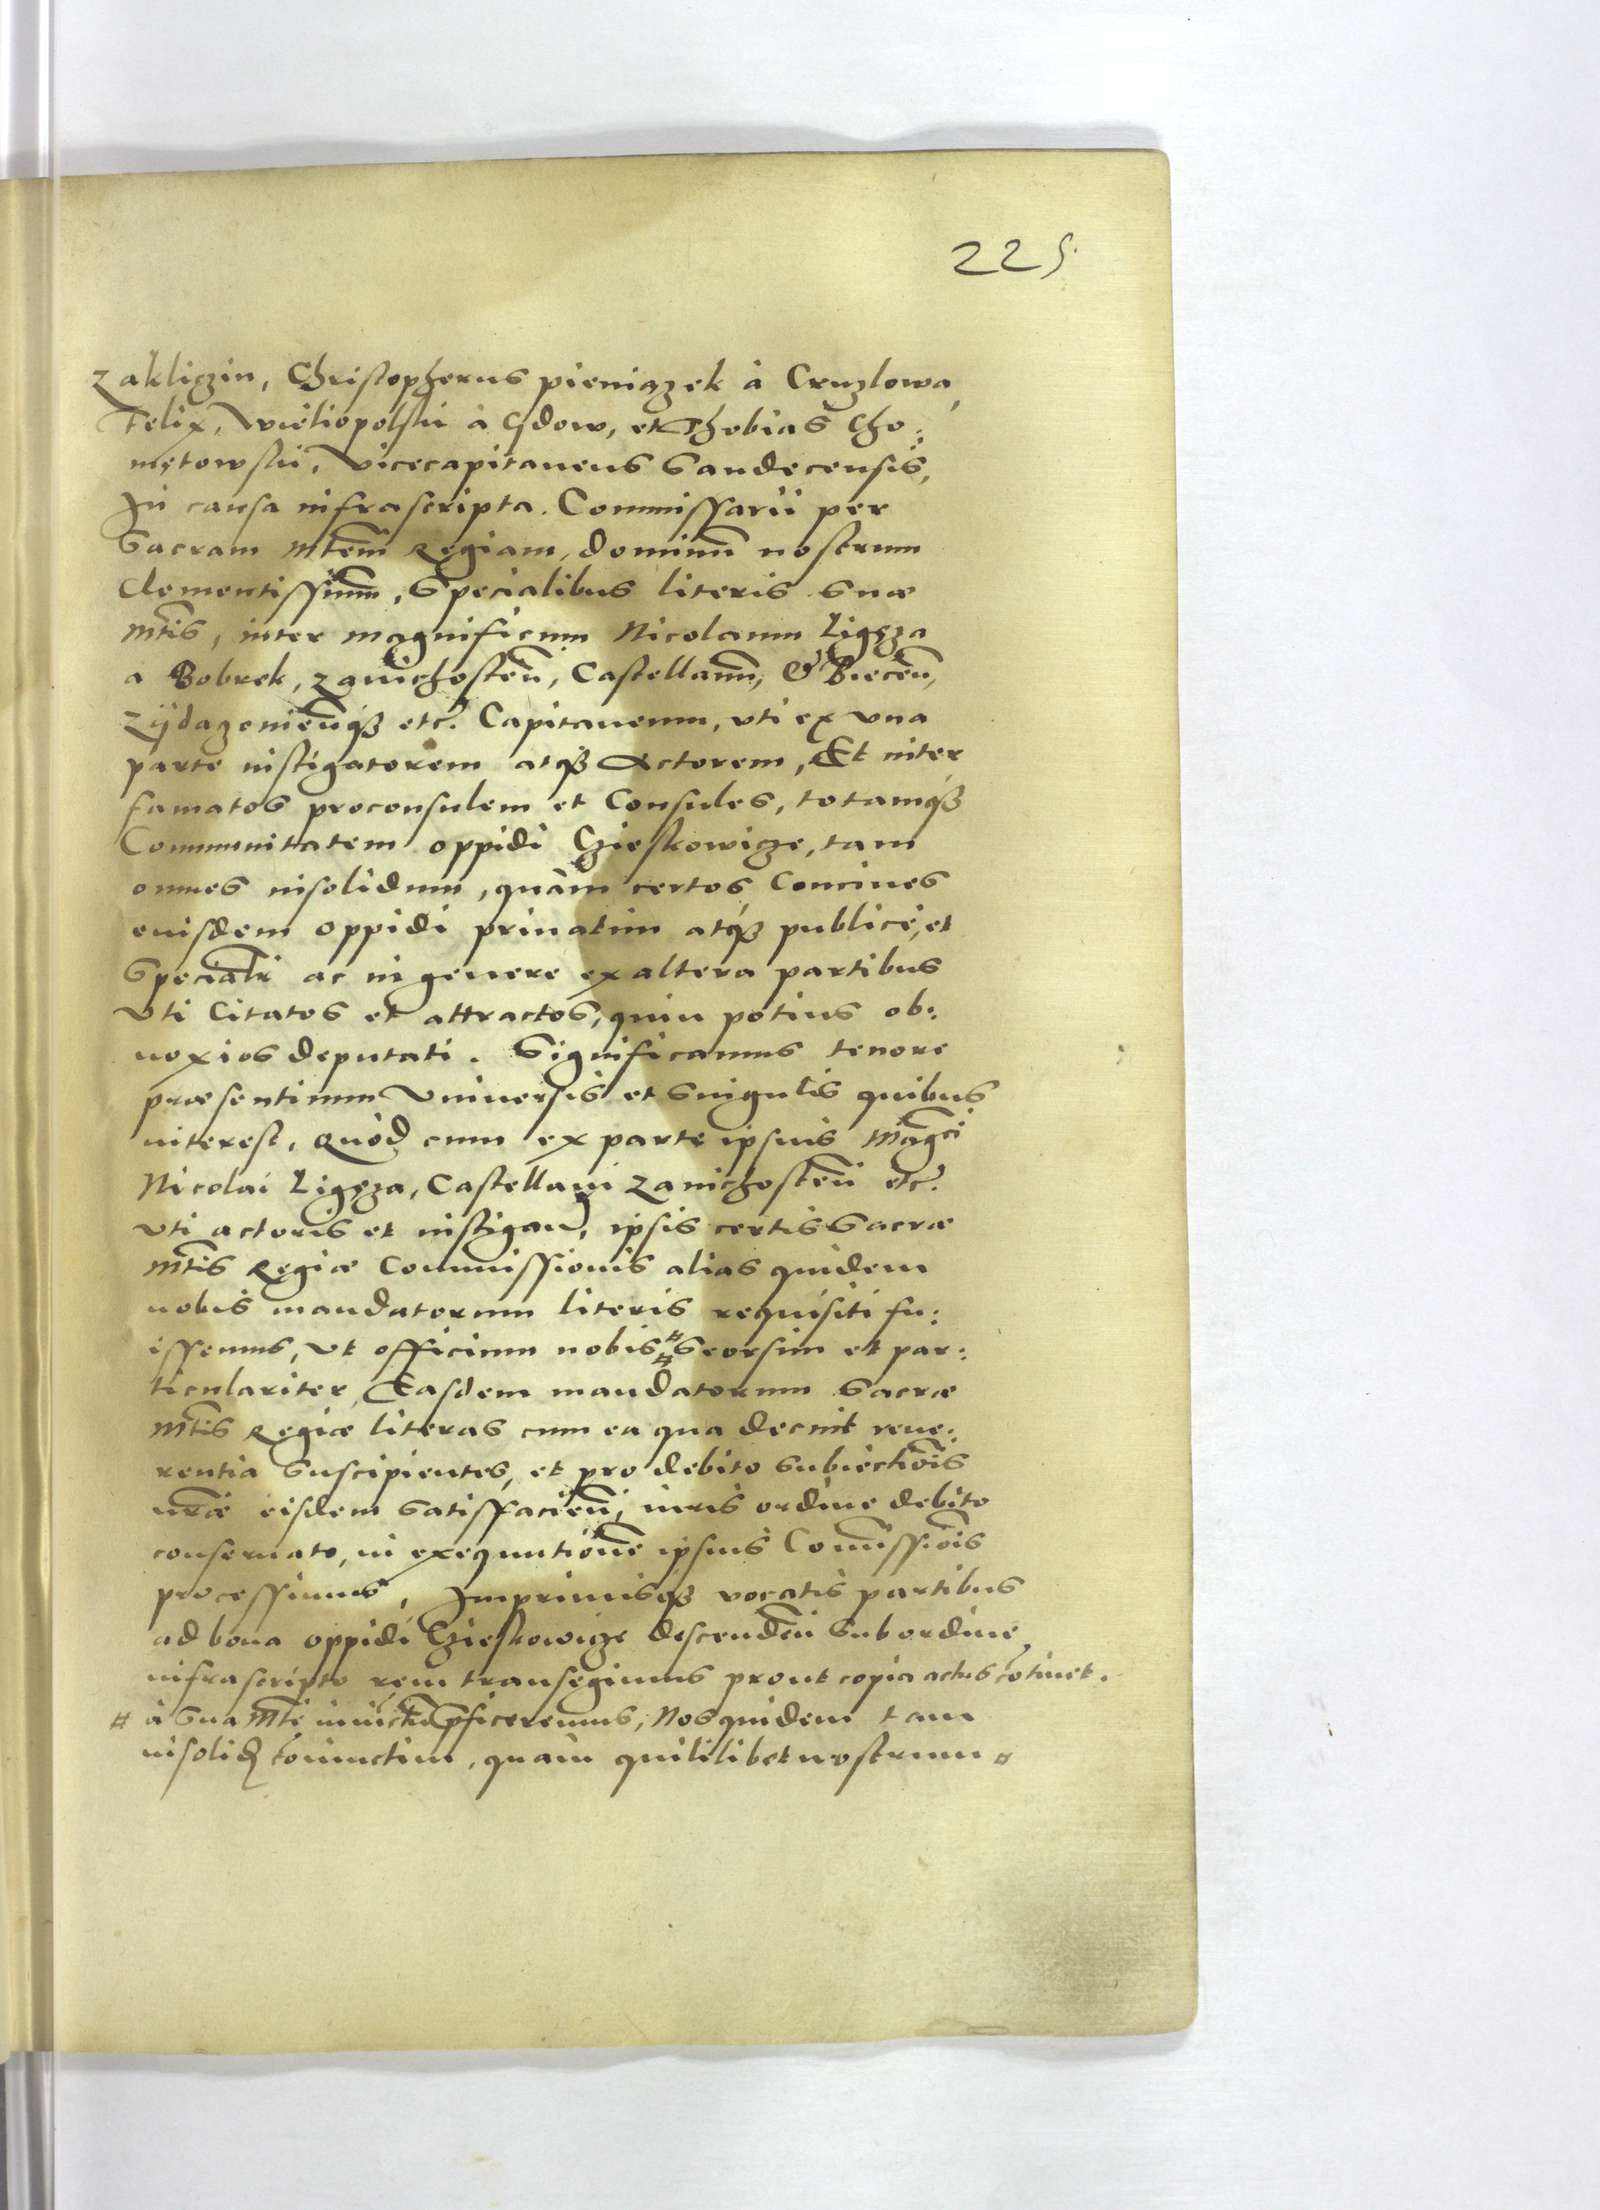 225
Zakliczin, Christopherus Pieniązek à Cruzlowa,
Felix, Wieliopolski à Gdow, et Thobias Cho:
mętowski, Vicecapitaneus Sandecensis,
In causa infrascripta. Commissarii per
Sacram Mtem̄ Regiam, dominū nostrum
Clementissimū, Specialibus literis Suæ
Mtis, inter magnificum Nicolaum Ligęza
a Bobrek, Zawichosteñ, Castellanū, & Bieceñ,
Zydazowieñq3 etc. Capitaneum, vti ex vna
parte instigatorem atq3 Actorem, Et inter
famatos proconsulem et Consules, totamq3
Communitatem oppidi Czieskowicze, tam
omnes insolidum, quàm certos Conciues
eiusdem oppidi priuatim atq3 publicè, et
Specialr̄ ac in genere ex altera partibus
Vti Citatos et attractos, quin potius ob:
noxios deputati. Significamus tenore
præsentium Vniuersis et Singulis quibus
interest, Quòd cum ex parte ipsius Magci
Nicolai Ligęza, Castellani Zawichosteñ etc.
vti actoris et instigan), ipsis certis Sacræ
Mtis Regiæ Commissionis alias quidem
nobis mandatorum literis requisiti fu:
issemus, vt officium nobis # Seorsim et par:
ticulariter, Easdem mandatorum Sacræ
Mtis Regiæ literas cum ea qua decuit reue:
rentia Suscipientes, et pro debito Subiectiōis
nrǣ eisdem Satisfacieñ, iuris ordine debito
conseruato, in exequutionē ipsius Com̄issiōis
processimus, Imprimisq3 vocatis partibus
ad bona oppidi Czieskowicze descendeñ Sub ordine
infrascripto rem transegimus prout copia actus cōtinet.
# à Sua Mte iniūctū pficeremus, Nos quidem tam
insolid) cōiunctim, quàm quililibet nostrum #